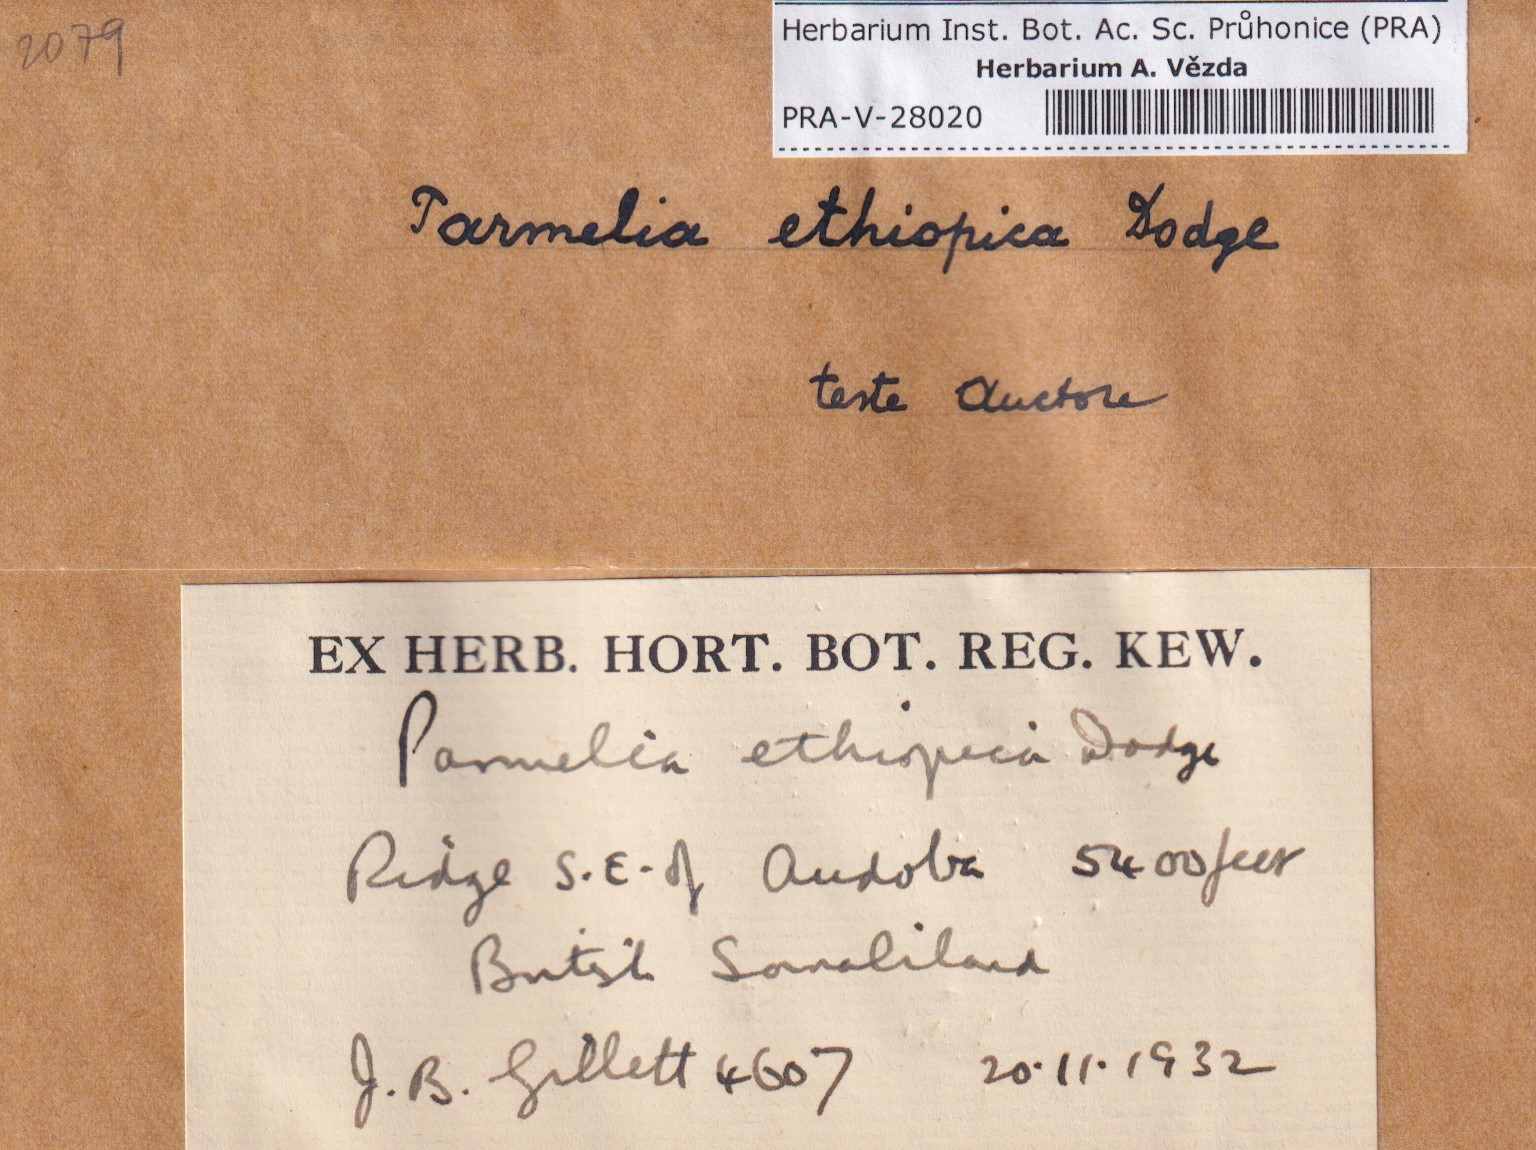 2079
Herbarium Inst. Bot. Ac. Sc. Průhonice (PRA)
Herbarium A. Vězda
PRA-V-28020
Parmelia ethiopica Dodge
teste Auctore
EX HERB. HORT. BOT. REG. KEW.
Parmelia ethiopica Dodge
Ridge S.E. of Audoba 5400 feet
British Somaliland
J. B. Gillett 4607 20.11.1932